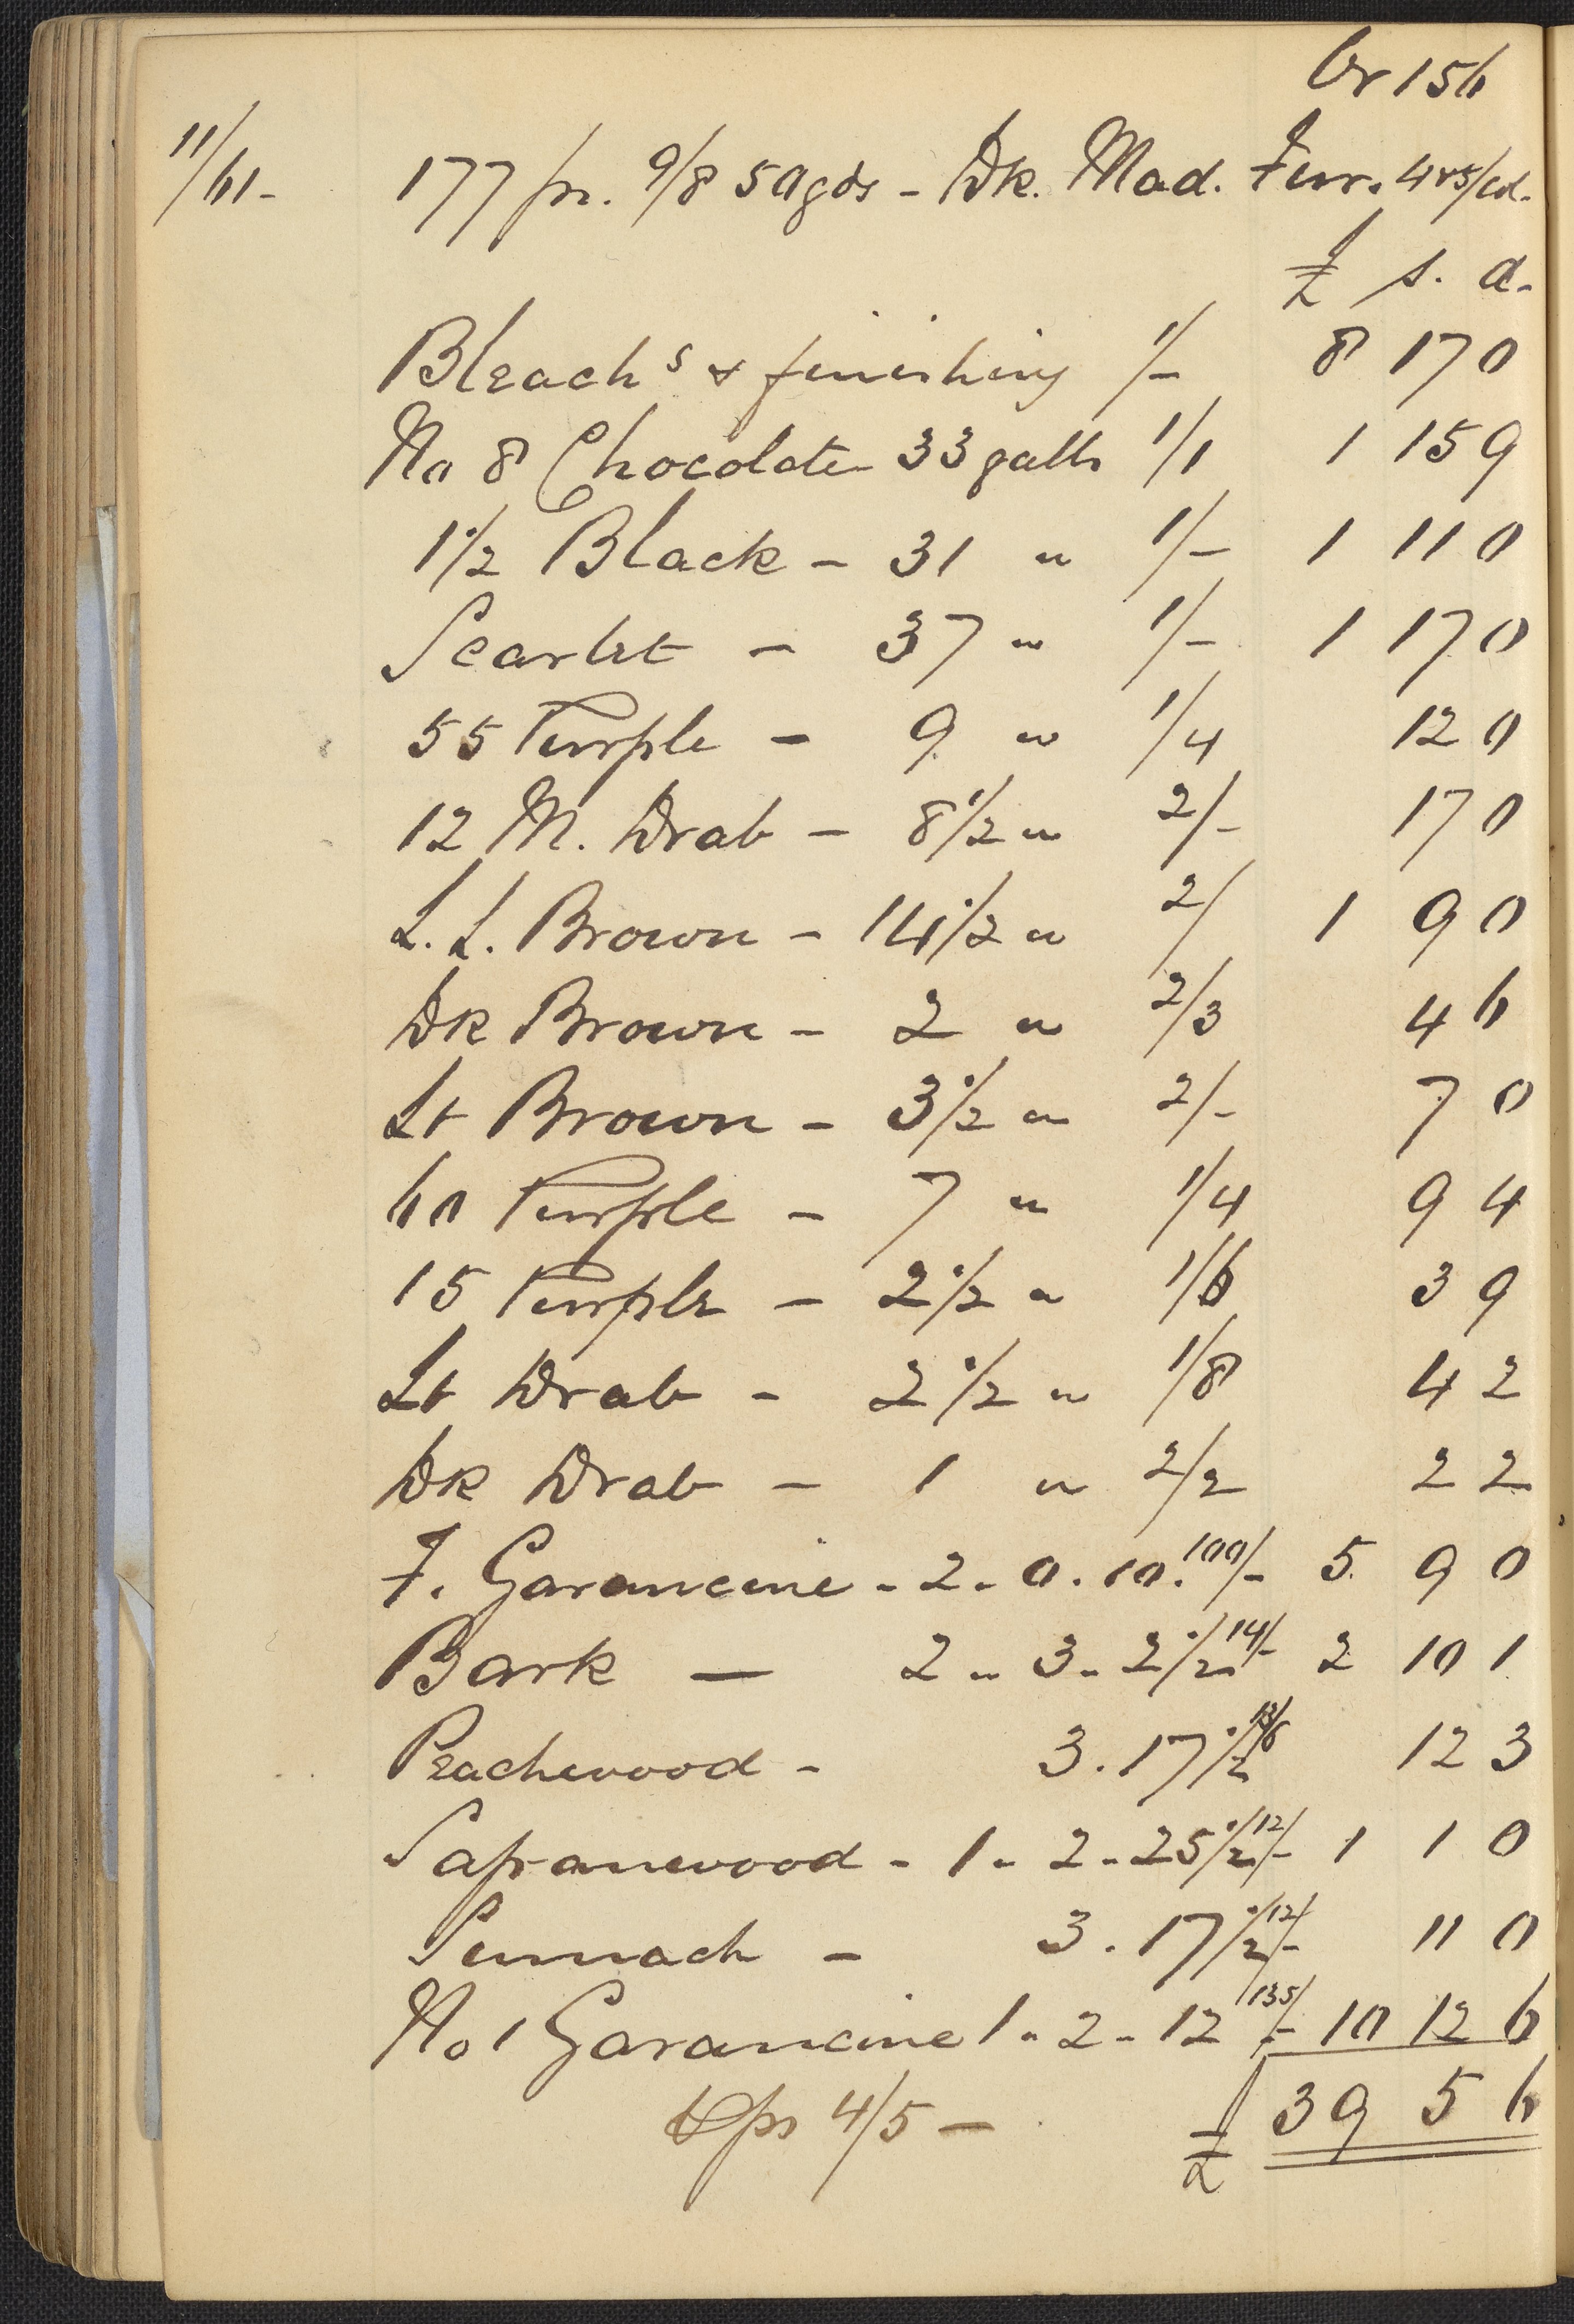 Or 156
11/61- 177 ps. 9/8 59gds - Dk. Mad. Furr. 4+5/cd.
£ s. d.
Bleach s & finishing 1/- 8 17 0
No 8 Chocolate 33 galls 1/1 1 15 9
1 1/2 Black - 31 " 1/- 1 11 0
Scarlet - 37 " 1/- 1 17 0
55 Purple - 9 " 1/4 12 0
12 M. Drab - 8 1/2 " 2/- 17 0
L. L. Brown - 14 1/2 " 2/ 1 9 0
Dk Brown - 2 " 2/3 4 6
Lt Brown - 3 1/2 " 2/- 7 0
60 Purple - 7 " 1/4 9 4
15 Purple - 2 1/2 " 1/6 3 9
Lt Drab - 2 1/2 " 1/8 4 2
Dk Drab - 1 " 2/2 2 2
F. Garancine - 2 - 0 . 10. 100/- 5 9 0
Bark — 2 " 3 - 2 1/2 14/- 2 10 1
Peachewood - 3 . 17 1/2 12 3
Sapanwood - 1 - 2 - 25 1/2 12/- 1 1 0
Sumach - 3 . 17 1/2 12/- 11 0
No 1 Garancine 1 - 2 - 12 135/- 10 12 6
ps 4/5 - £ 39 5 6